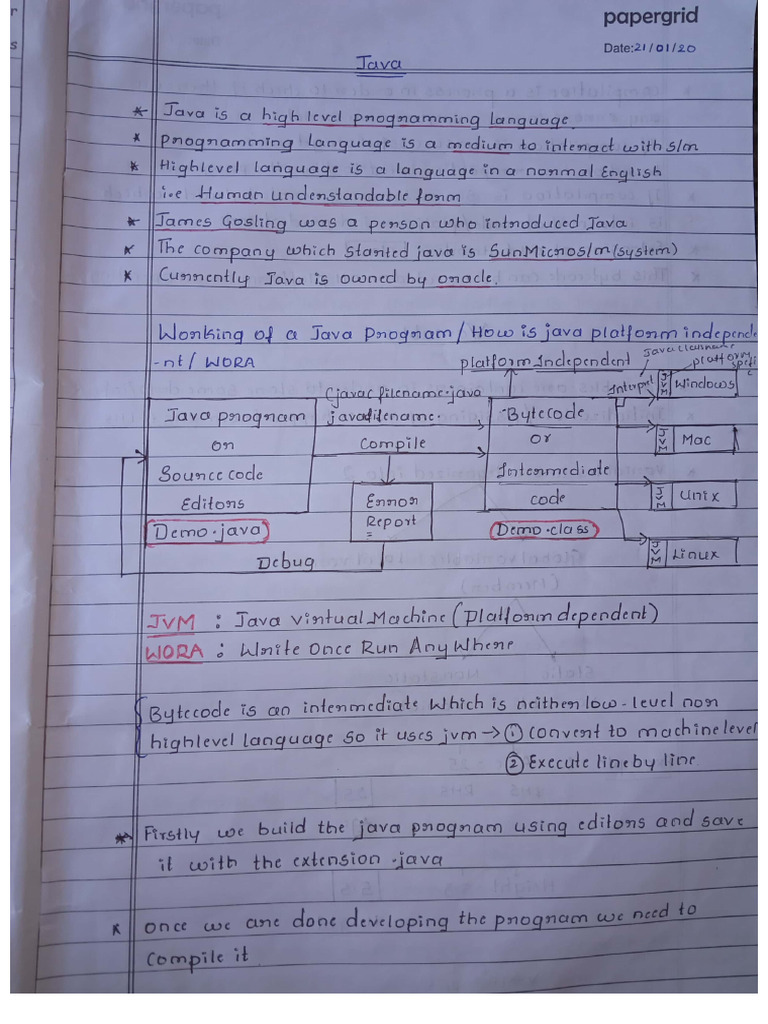 r
s
papergrid
Date: 21/01/20
Java
* Java is a high level programming language.
* programming language is a medium to interact with s/m
* Highlevel language is a language in a normal English
i.e Human understandable form
* James Gosling was a person who introduced Java
* The company which started java is SunMicros/m (system)
* Currently Java is owned by oracle.
Working of a Java Program / How is java platform independe
-nt / WORA
platform Independent
Java classname
platform
Cjavac filename.java
Interpret
JVM Windows
Java program
javafilename.
Bytecode
or
Compile
or
JVM Mac
Source code
Intermediate
Editors
Error
code
JVM Unix
Demo.java
Report
Demo.class
Debug
JVM Linux
JVM : Java Virtual Machine (Platform dependent)
WORA : Write Once Run Any Where
Bytecode is an intermediate which is neither low-level nor
highlevel language so it uses jvm → ① Convert to machine level
② Execute line by line
* Firstly we build the java program using editors and save
it with the extension .java
* once we are done developing the program we need to
compile it